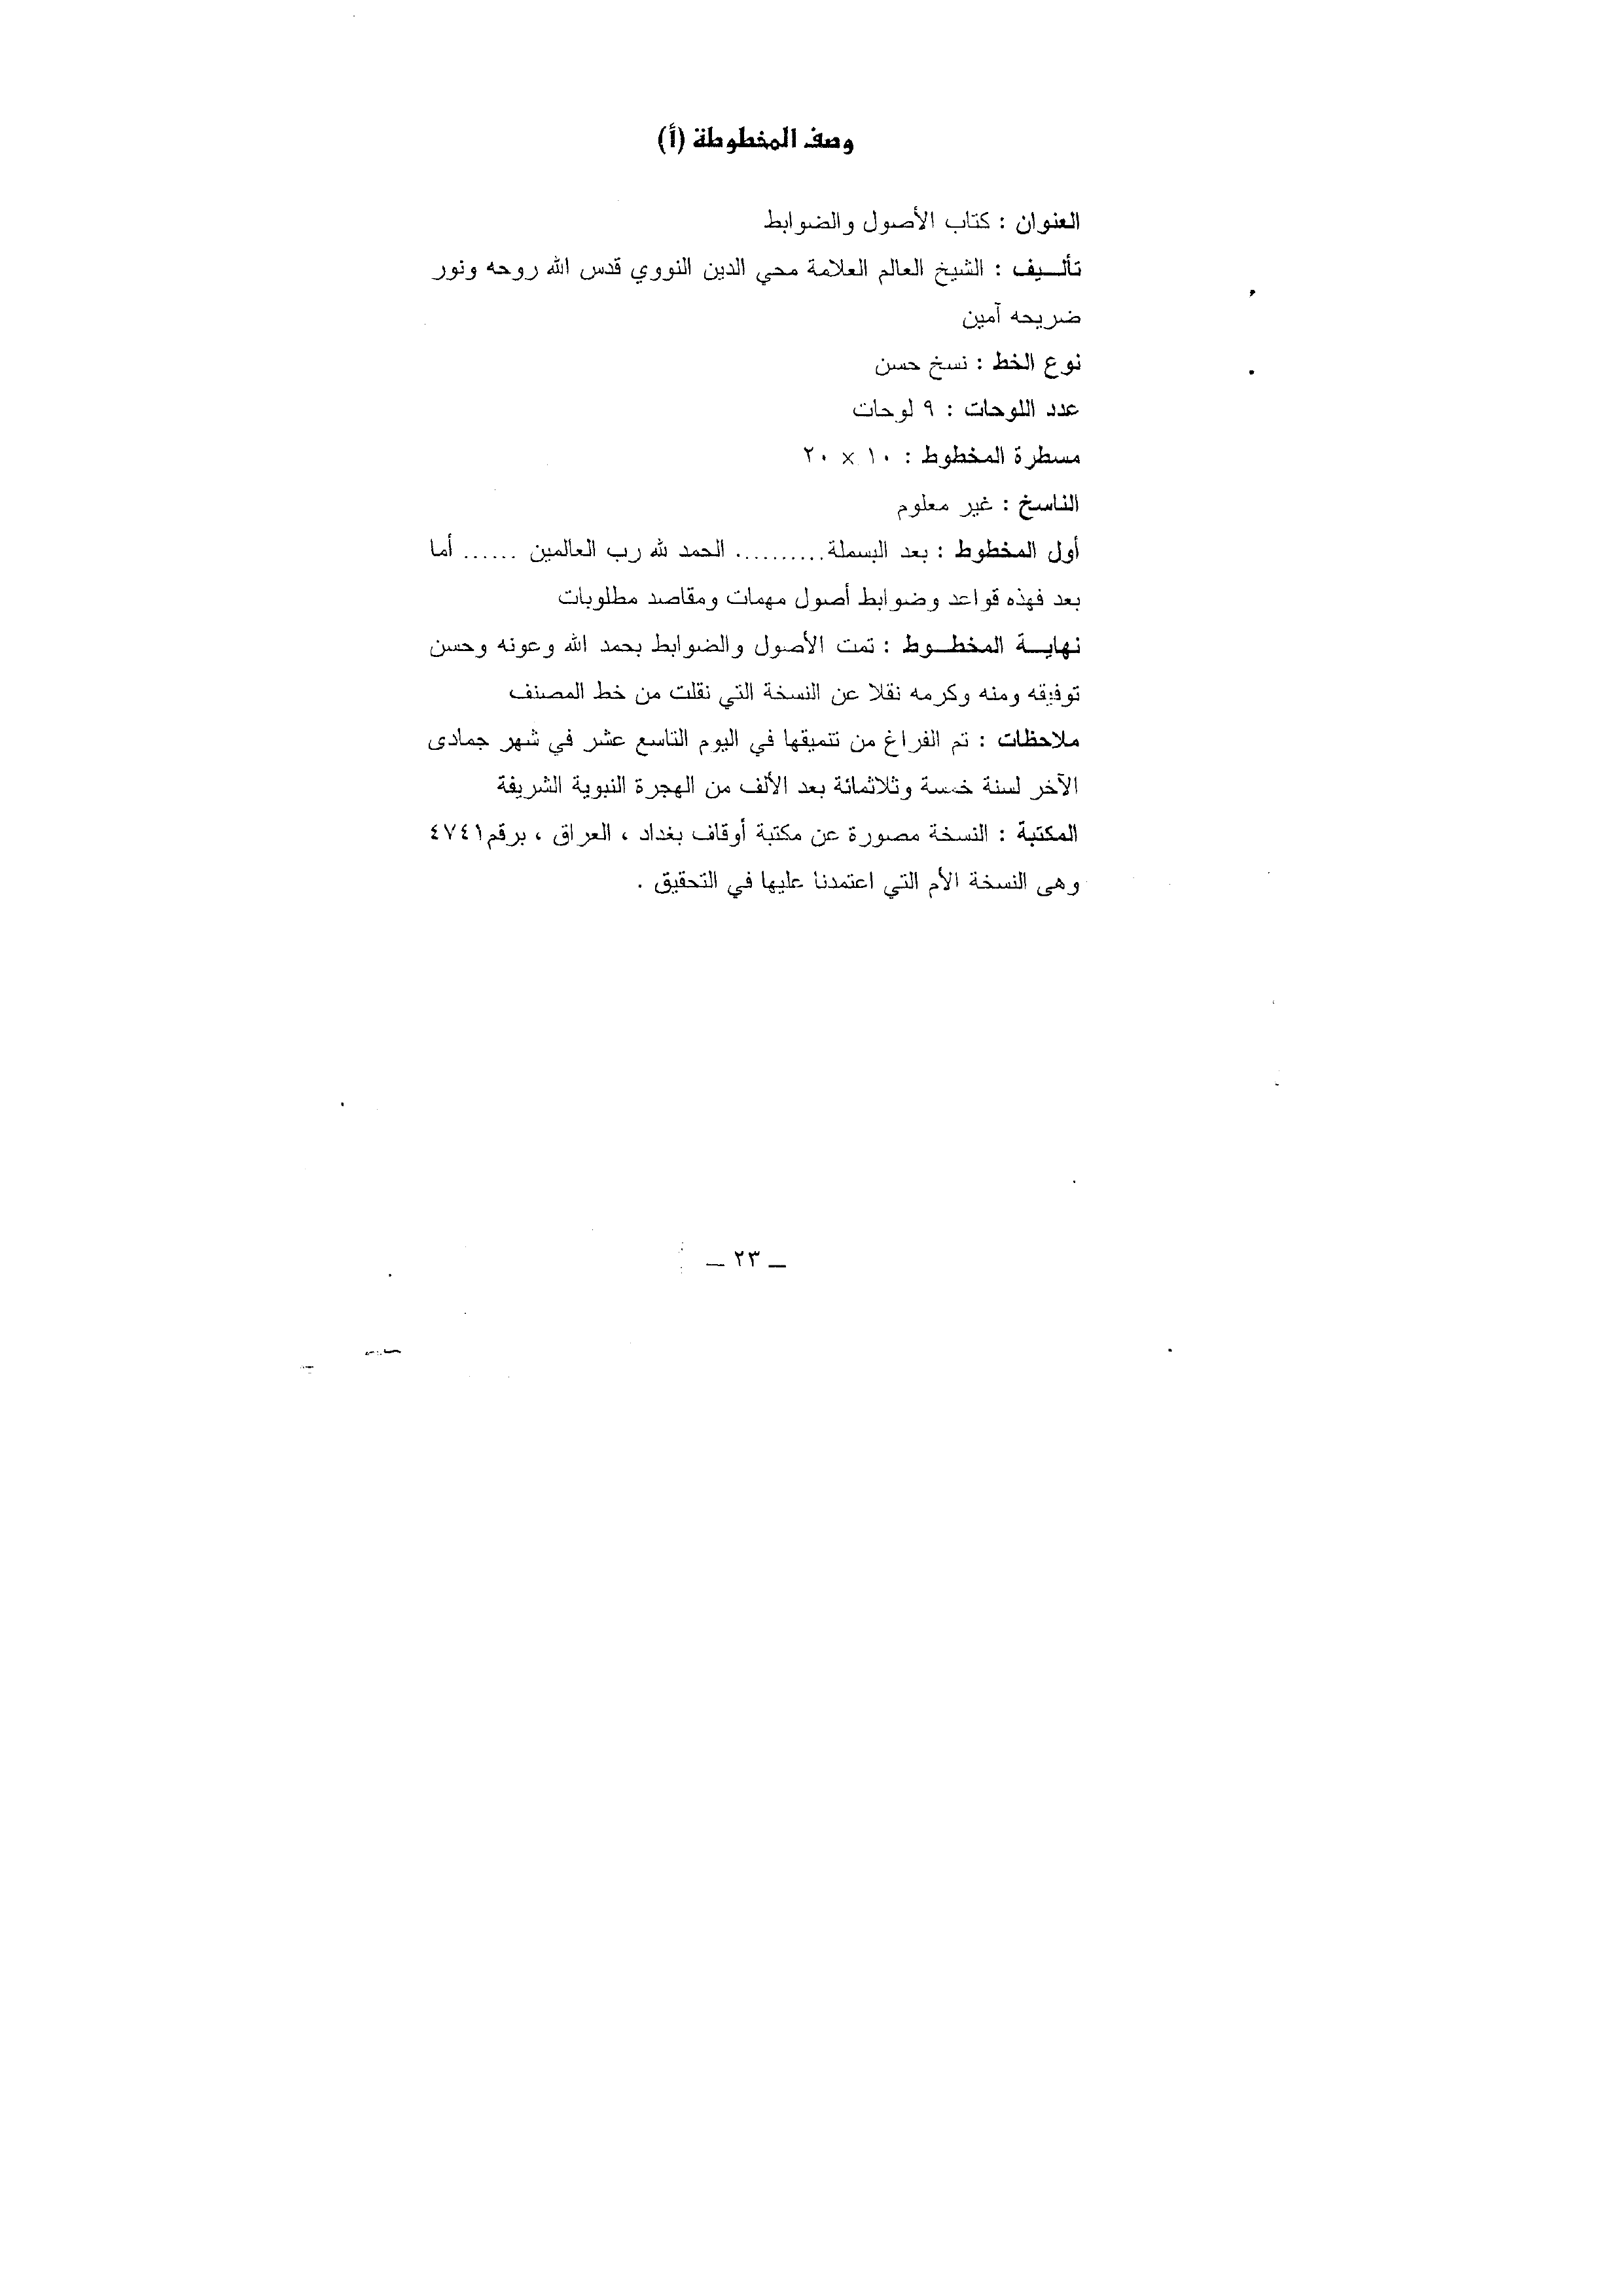 وصف المخطوطة (أ)
العنوان : كتاب الأصول والضوابط
تأليف : الشيخ العالم العلامة محي الدين النووي قدس الله روحه ونور
ضريحه آمين
نوع الخط : نسخ حسن
عدد اللوحات : ٩ لوحات
مسطرة المخطوط : ١٠ × ٢٠
الناسخ : غير معلوم
أول المخطوط : بعد البسملة.......... الحمد لله رب العالمين ...... أما
بعد فهذه قواعد وضوابط أصول مهمات ومقاصد مطلوبات
نهاية المخطوط : تمت الأصول والضوابط بحمد الله وعونه وحسن
توفيقه ومنه وكرمه نقلا عن النسخة التي نقلت من خط المصنف
ملاحظات : تم الفراغ من تنميقها في اليوم التاسع عشر في شهر جمادى
الآخر لسنة خمسة وثلاثمائة بعد الألف من الهجرة النبوية الشريفة
المكتبة : النسخة مصورة عن مكتبة أوقاف بغداد ، العراق ، برقم ٤٧٤١
وهى النسخة الأم التي اعتمدنا عليها في التحقيق .
ــ ٢٣ ــ